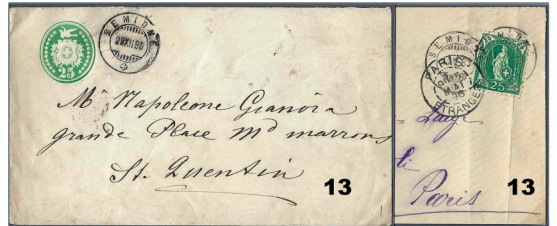 25
SEMIONE
28 XII 80
Mr Napoleone Granora
grande Place Md marrons
St. Quentin
13
SEMIONE
PARIS
ETRANGER
25
Luigi
Paris
13